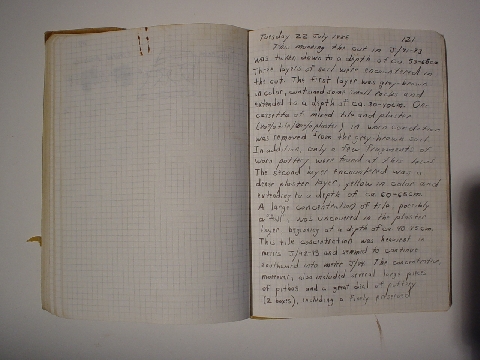 Tuesday 22 July 1986 121
This morning the cut in J/41-43
was taken down to a depth of ca. 55-65cm
Three layers of soil were encountered in
the cut. The first layer was grey-brown
in color, contained some small rocks and
extended to a depth of ca. 30-40cm. One
cassetta of mixed tile and plaster
in worn condition
was removed from the grey-brown soil.
In addition, only a few fragments of
worn pottery were found at this level.
The second layer encountered was a
dense plaster layer, yellow in color and
extending to a depth of ca 60-65cm.
A large concentration of tile, possibly
a "fall", was uncovered in the plaster
layer beginning at a depth of ca 40-45cm.
The tile concentration was heaviest in
meters J/42-43 and seemed to continue
southward into meter J/44. The concentration,
moreover, also included several large pieces
of pithos and a great deal of pottery
(2 boxes), including a finely preserved